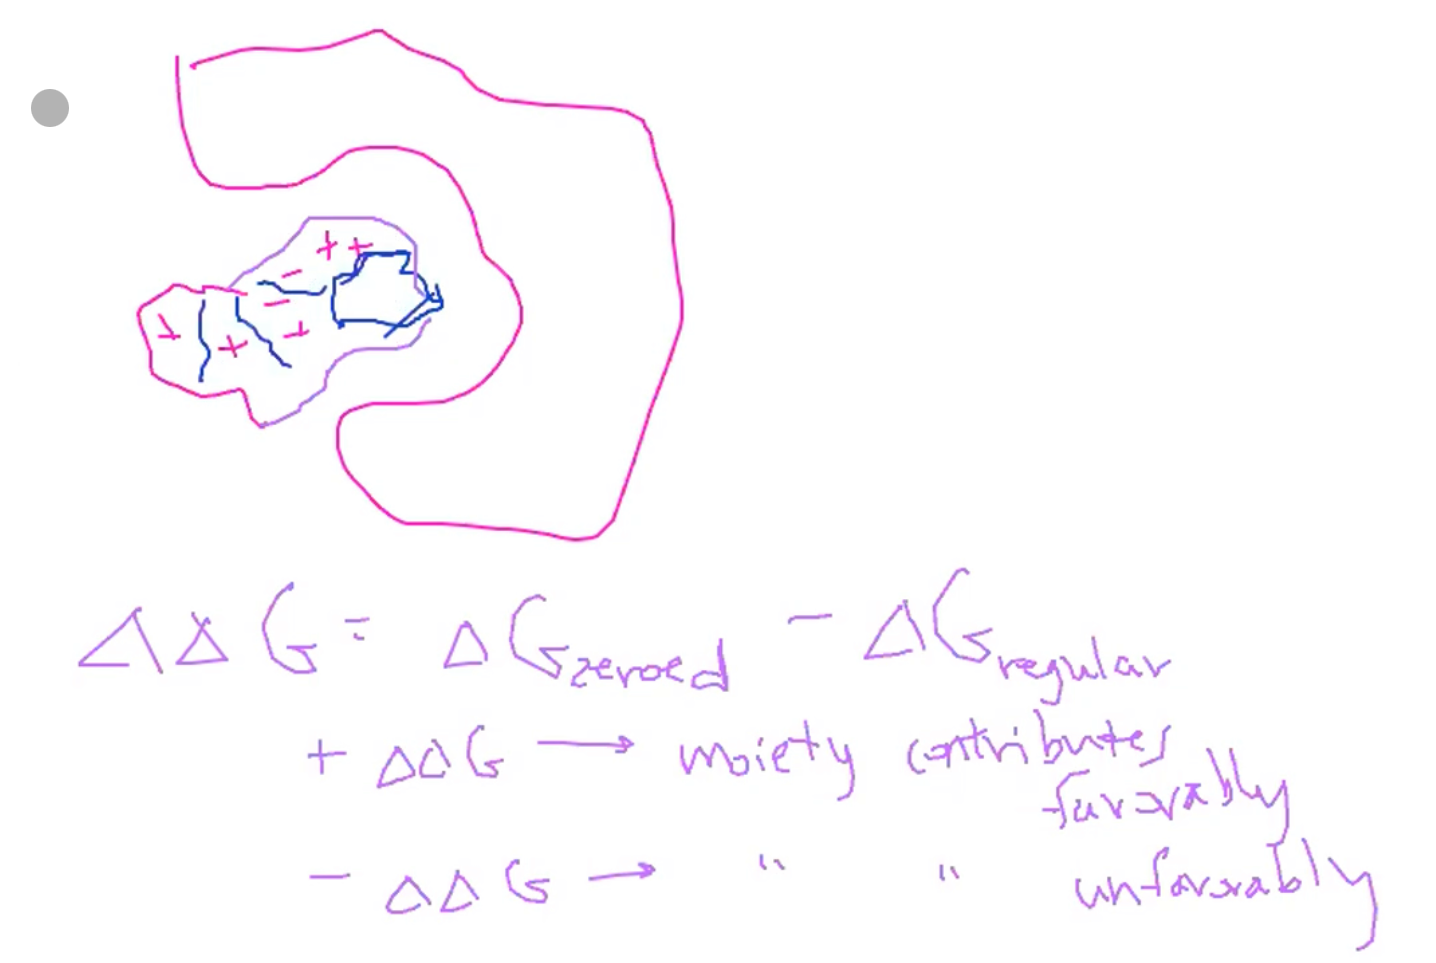 + +
-
-
+ + +
ΔΔG = ΔGzeroed - ΔGregular
+ ΔΔG → moiety contributes
favorably
- ΔΔG → " " unfavorably